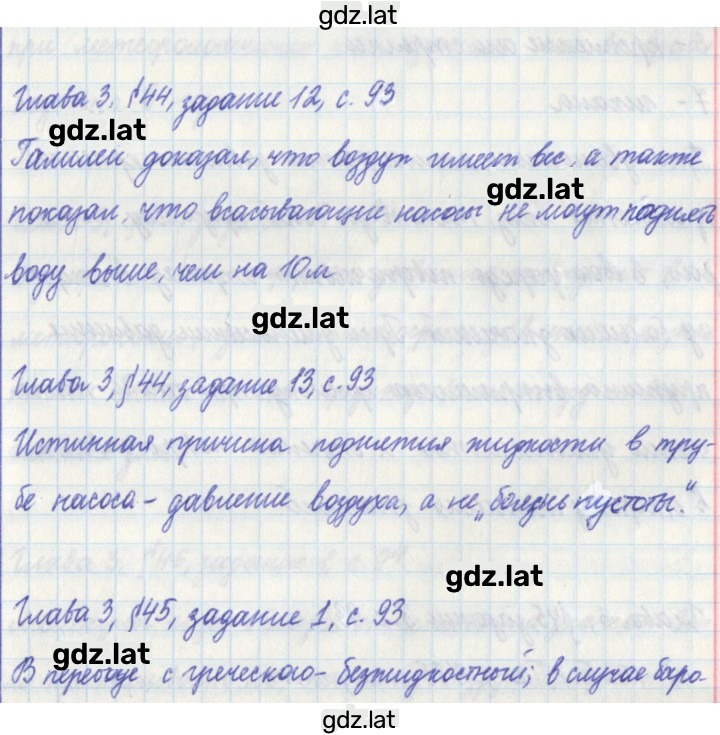 gdz.lat
Глава 3, §44, задание 12, с. 93
gdz.lat
Галилей доказал, что воздух имеет вес, а также
gdz.lat
показал, что всасывающие насосы не могут поднять
воду выше, чем на 10м
gdz.lat
Глава 3, §44, задание 13, с. 93
Истинная причина поднятия жидкости в тру-
бе насоса - давление воздуха, а не „боязнь пустоты".
gdz.lat
Глава 3, §45, задание 1, с. 93
gdz.lat
В переводе с греческого - безжидкостный; в случае баро-
gdz.lat